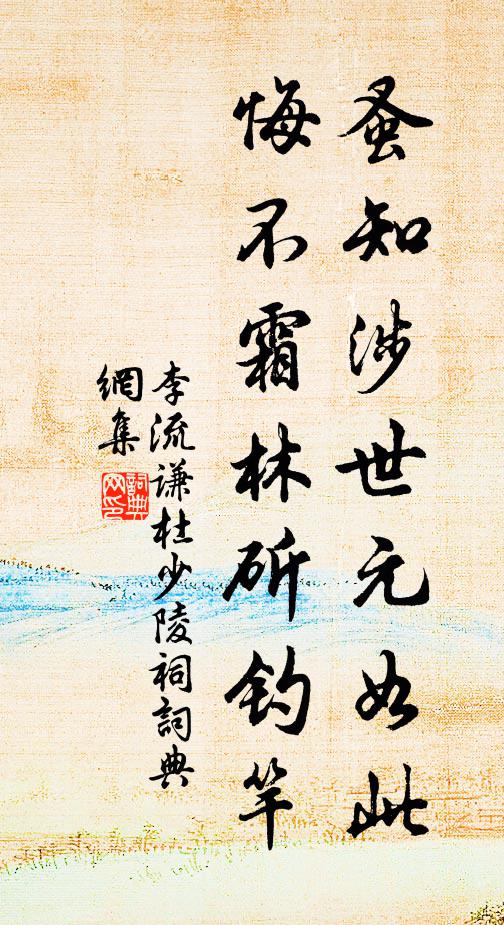 蚤知涉世元如此
悔不霜林斫钓竿
李流谦杜少陵祠詞典
網集
詞典
网印